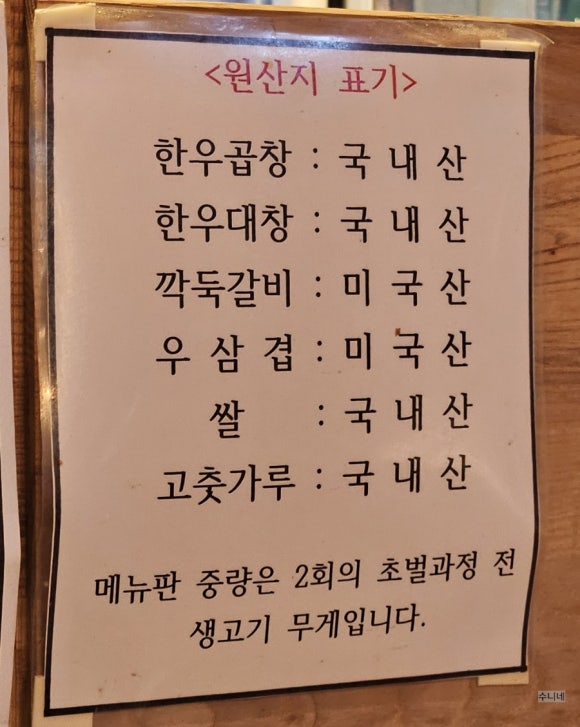 <원산지 표기>
한우곱창 : 국 내 산
한우대창 : 국 내 산
깍둑갈비 : 미 국 산
우 삼 겹 : 미 국 산
쌀 : 국 내 산
고춧가루 : 국 내 산
메뉴판 중량은 2회의 초벌과정 전
생고기 무게입니다.
수니네